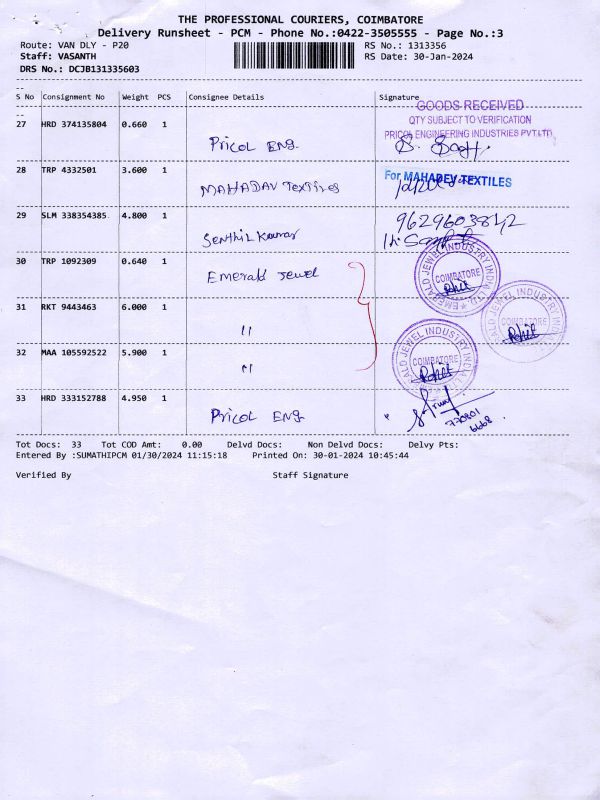 THE PROFESSIONAL COURIERS, COIMBATORE
Delivery Runsheet - PCM - Phone No.:0422-3505555 - Page No.:3
Route: VAN DLY - P20 RS No.: 1313356
Staff: VASANTH RS Date: 30-Jan-2024
DRS No.: DCJB131335603
S No Consignment No Weight PCS Consignee Details Signature
GOODS RECEIVED
QTY SUBJECT TO VERIFICATION
PRICOL ENGINEERING INDUSTRIES PVT LTD
27 HRD 374135804 0.660 1
Pricol Eng.
28 TRP 4332501 3.600 1
MAHADAV Textiles
For MAHADEV TEXTILES
29 SLM 338354385 4.800 1
Senthil Kumar
30 TRP 1092309 0.640 1
Emerald Jewel
EMERALD JEWEL INDUSTRY INDIA LTD
COIMBATORE
Rohit
31 RKT 9443463 6.000 1
"
EMERALD JEWEL INDUSTRY INDIA LTD
COIMBATORE
Rohit
32 MAA 105592522 5.900 1
"
EMERALD JEWEL INDUSTRY INDIA LTD
COIMBATORE
Rohit
33 HRD 333152788 4.950 1
Pricol Eng
770801
6668
Tot Docs: 33 Tot COD Amt: 0.00 Delvd Docs: Non Delvd Docs: Delvy Pts:
Entered By :SUMATHIPCM 01/30/2024 11:15:18 Printed On: 30-01-2024 10:45:44
Verified By Staff Signature